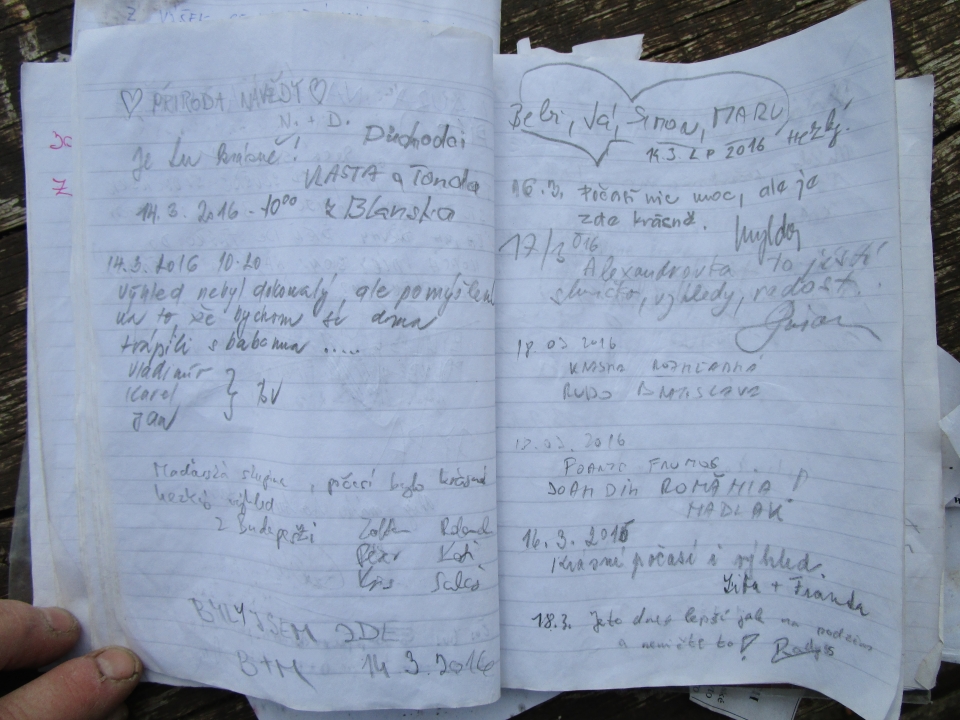 ♡ PŘÍRODA NÁVĚDY ♡
N. + D.
Je tu krásně!
Důchodci
VLASTA a Tonda
14.3. 2016 - 10⁰⁰ z Blanska
14.3.2016 10.20
Výhled nebyl dokonalý, ale pomyšlení
na to že bychom se doma
trápili s babama .....
Vladimír
Karel
Jan
Maďarská skupina, počasí bylo krásné
hezký výhled
z Budapešti
Zoltán Roland
Péter Kati
BYLY JSEM ZDE
B+M 14 3.2016
Bebi, Já, SIMON, MARU
14.3 LP 2016
16.3. Počasí nic moc, ale je
zde krásně.
17/3 016
Alexandrovka to jistí
sluníčko, výhledy, radost.
18.03 2016
KRÁSNÁ ROZHĽADŇA
RUDO BRATISLAVA
2016
FOARTE FRUMOS
DOAR DIN ROMÂNIA!
NADLAK
16.3.2016
Krásné počasí i výhled.
Jiřa + Franta
18.3. Je to dnes lepší jak na podzim